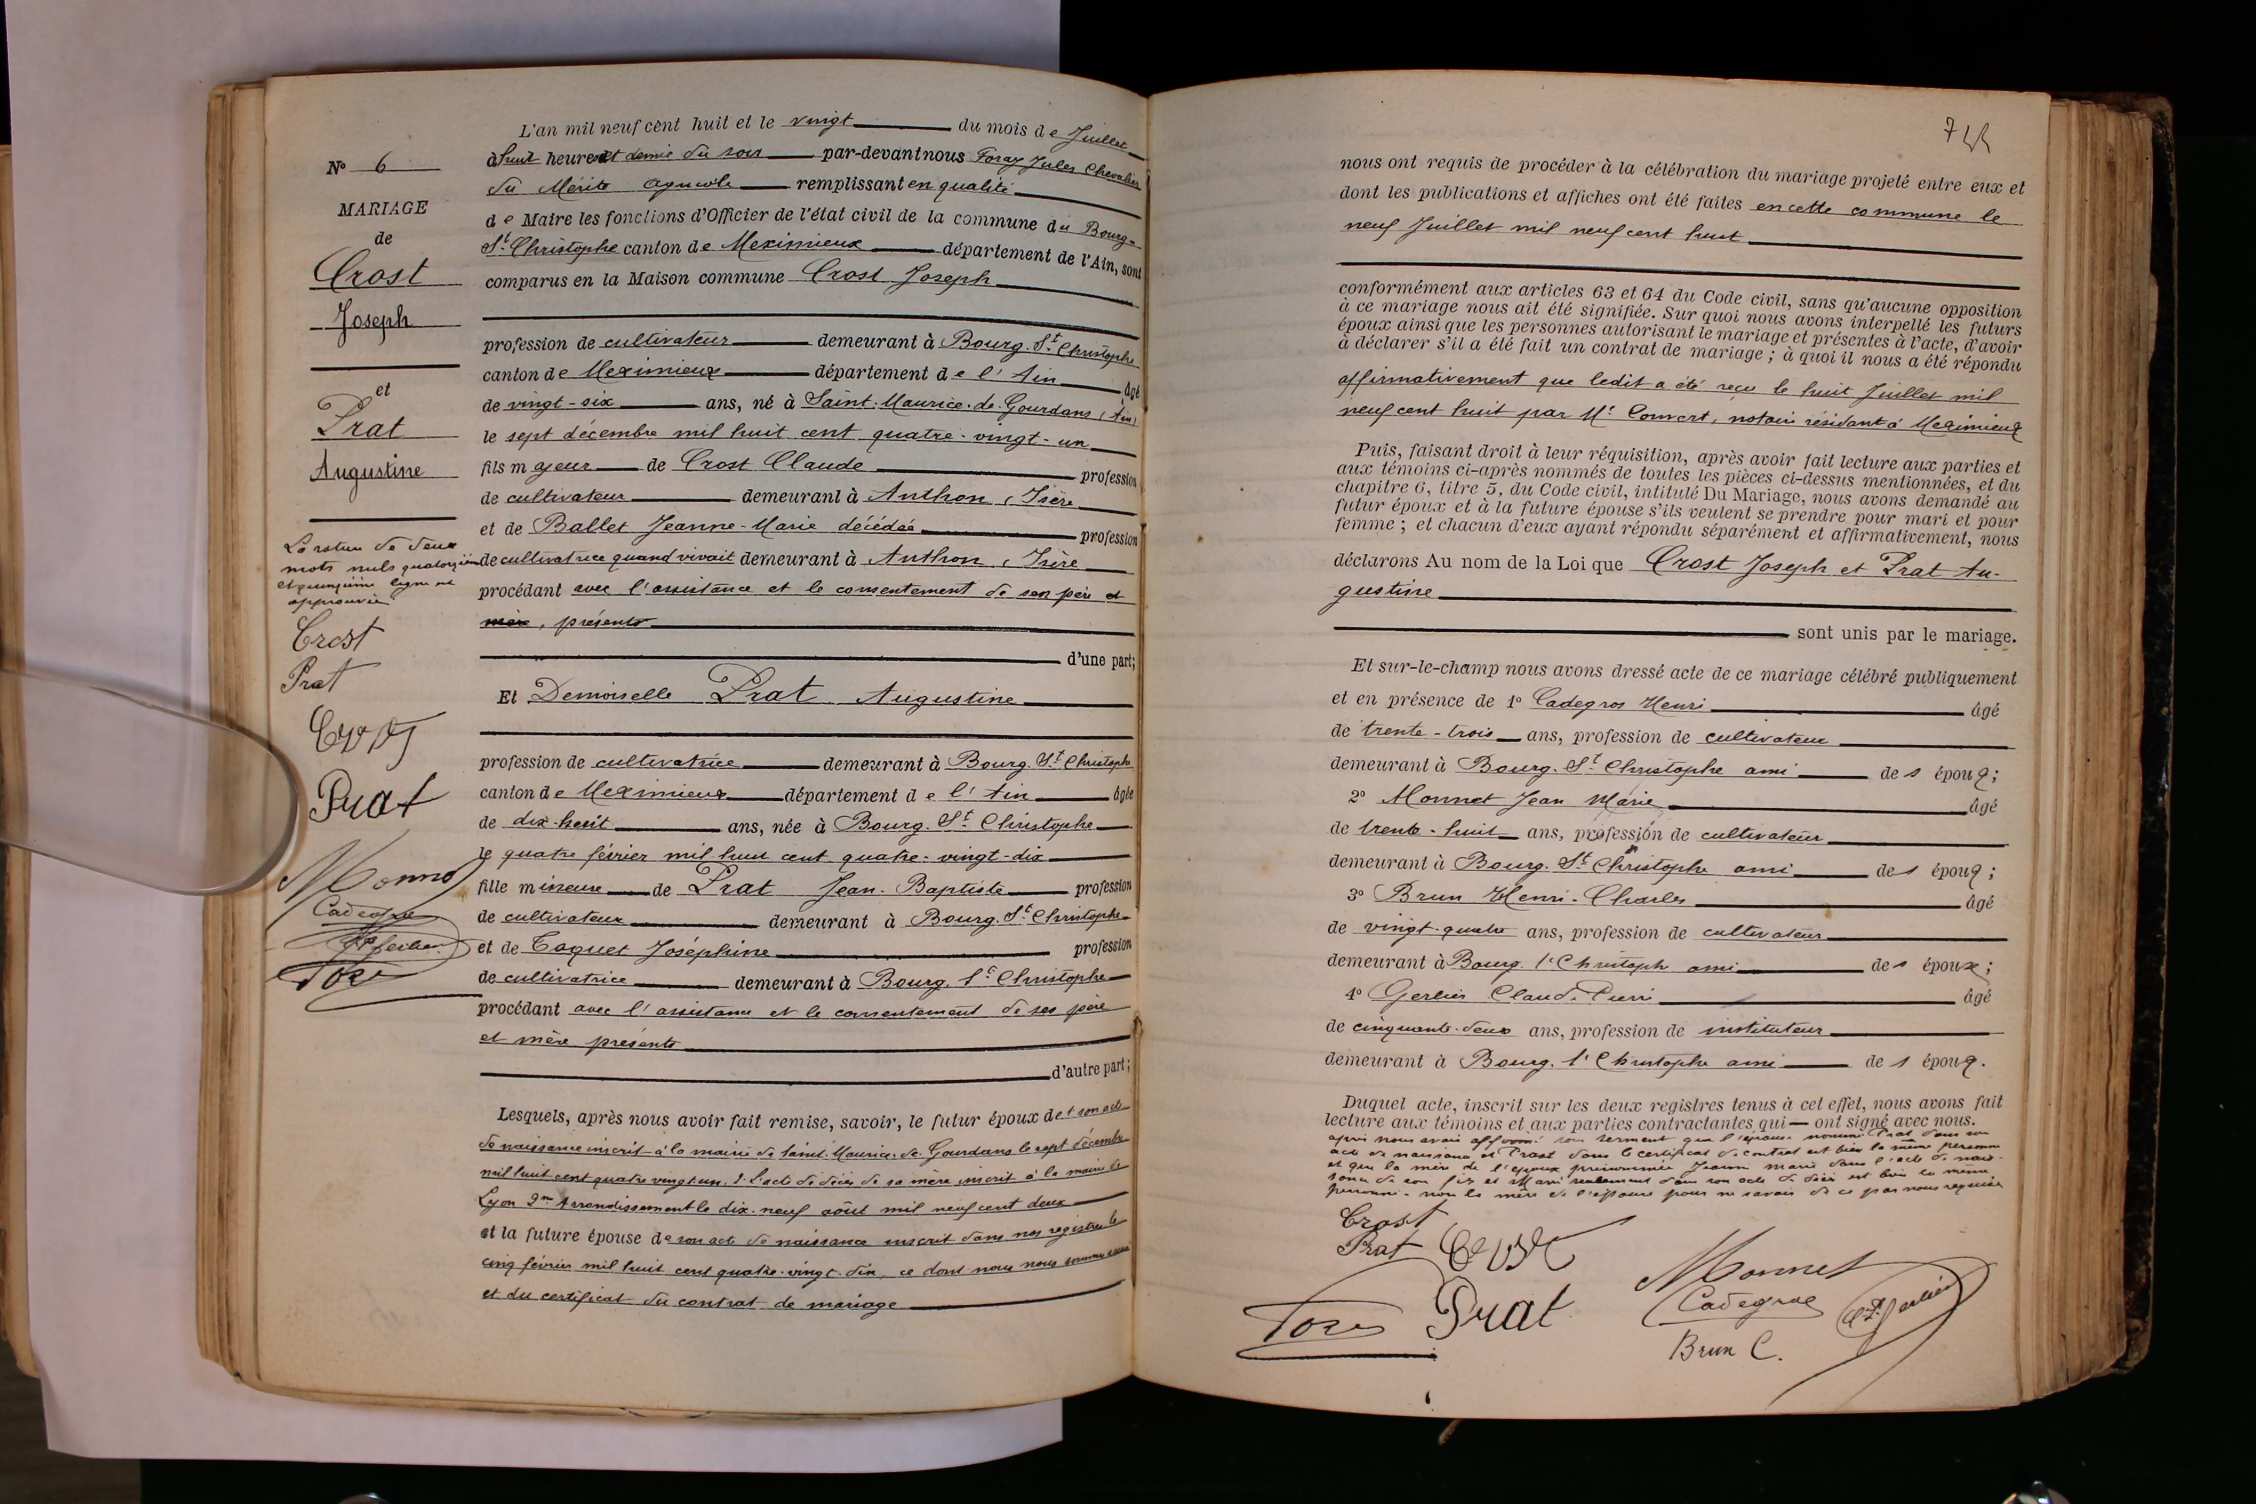 N° 6
MARIAGE
de
Crost
Joseph
et
Prat
Augustine
La rature de deux
mots nuls quatorzième
et quinzième ligne
approuvée
Crost
Prat
Prat
Cadegros
L'an mil neuf cent huit et le vingt du mois de Juillet
à huit heures et demie du soir par-devant nous Foray Jules Chevalier
du Mérite agricole remplissant en qualité
de Maire les fonctions d'Officier de l'état civil de la commune du Bourg-
St Christophe canton de Meximieux département de l'Ain, sont
comparus en la Maison commune Crost Joseph
profession de cultivateur demeurant à Bourg. St Christophe
canton de Meximieux département de l'Ain âgé
de vingt-six ans, né à Saint-Maurice-de-Gourdans (Ain)
le sept décembre mil huit cent quatre-vingt-un
fils majeur de Crost Claude profession
de cultivateur demeurant à Anthon, Isère
et de Ballet Jeanne-Marie décédée profession
de cultivatrice quand vivait demeurant à Anthon, Isère
procédant avec l'assistance et le consentement de son père et
mère, présents
d'une part;
Et Demoiselle Prat Augustine
profession de cultivatrice demeurant à Bourg. St Christophe
canton de Meximieux département de l'Ain âgée
de dix-huit ans, née à Bourg. St Christophe
le quatre février mil huit cent quatre-vingt-dix
fille mineure de Prat Jean-Baptiste profession
de cultivateur demeurant à Bourg. St Christophe
et de Coquet Joséphine profession
de cultivatrice demeurant à Bourg. St Christophe
procédant avec l'assistance et le consentement de ses père
et mère présents
d'autre part;
Lesquels, après nous avoir fait remise, savoir, le futur époux de 1 son acte
de naissance inscrit à la mairie de Saint-Maurice-de-Gourdans le sept décembre
mil huit cent quatre vingt un, 2. L'acte de décès de sa mère inscrit à la mairie de
Lyon 2me Arrondissement le dix-neuf août mil neuf cent deux
et la future épouse de son acte de naissance inscrit dans nos registres le
cinq février mil huit cent quatre-vingt-dix, ce dont nous nous sommes
et du certificat du contrat de mariage
nous ont requis de procéder à la célébration du mariage projeté entre eux et
dont les publications et affiches ont été faites en cette commune le
neuf Juillet mil neuf cent huit
conformément aux articles 63 et 64 du Code civil, sans qu'aucune opposition
à ce mariage nous ait été signifiée. Sur quoi nous avons interpellé les futurs
époux ainsi que les personnes autorisant le mariage et présentes à l'acte, d'avoir
à déclarer s'il a été fait un contrat de mariage ; à quoi il nous a été répondu
affirmativement que ledit a été reçu le huit Juillet mil
neuf cent huit par Me Convert, notaire résidant à Meximieux
Puis, faisant droit à leur réquisition, après avoir fait lecture aux parties et
aux témoins ci-après nommés de toutes les pièces ci-dessus mentionnées, et du
chapitre 6, titre 5, du Code civil, intitulé Du Mariage, nous avons demandé au
futur époux et à la future épouse s'ils veulent se prendre pour mari et pour
femme ; et chacun d'eux ayant répondu séparément et affirmativement, nous
déclarons Au nom de la Loi que Crost Joseph et Prat Au-
gustine
sont unis par le mariage.
Et sur-le-champ nous avons dressé acte de ce mariage célébré publiquement
et en présence de 1° Cadegros Henri âgé
de trente-trois ans, profession de cultivateur
demeurant à Bourg. St Christophe ami des époux;
2° Monnet Jean Marie âgé
de trente-huit ans, profession de cultivateur
demeurant à Bourg. St Christophe ami des époux;
3° Brun Henri-Charles âgé
de vingt-quatre ans, profession de cultivateur
demeurant à Bourg. St Christophe ami des époux;
4° Gerlier Claude Pierre âgé
de cinquante-deux ans, profession de instituteur
demeurant à Bourg. St Christophe ami des époux.
Duquel acte, inscrit sur les deux registres tenus à cet effet, nous avons fait
lecture aux témoins et aux parties contractantes qui ont signé avec nous.
après nous avoir affirmé sous serment que l'épouse nommée Prat dans son
acte de naissance et Prast dans le certificat de contrat est bien la même personne
et que la mère de l'époux prénommée Jeanne Marie dans l'acte de nais-
sance de son fils et Marie seulement dans son acte de décès est bien la même
personne. non la mère de l'épouse pour ne savoir de ce par nous requise
Crost
Prat
Prat
Monnet
Cadegros
Brun C.